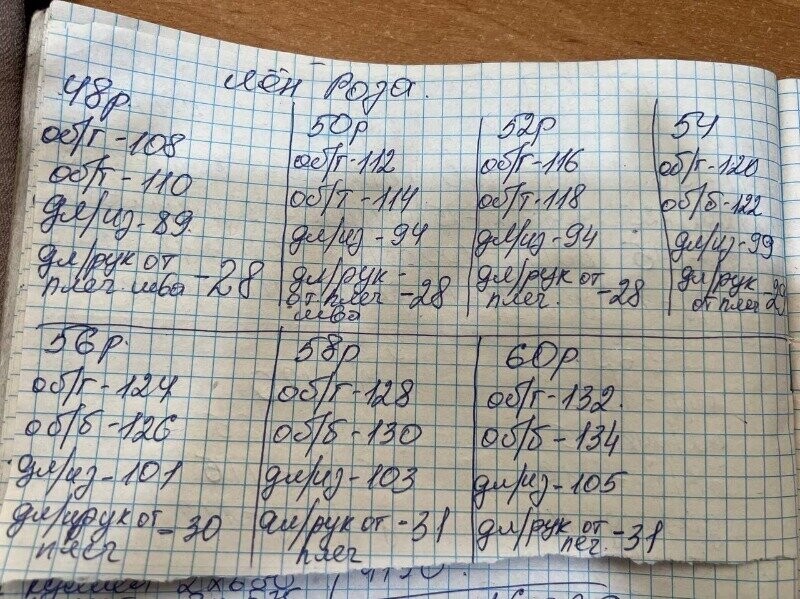 лён Роза.
48р.
об/г-108
об/т-110
дл/из-89.
дл/рук от
плеч. шва -28
50р
об/г-112
об/т-114
дл/из-94
дл/рук -
от плеч -28
шва
52р
об/г-116
об/т-118
дл/из-94
дл/рук от
плеч. -28
54
об/г-120
об/б-122
дл/из-99
дл/рук
от плеч -29
56р.
об/г-124
об/б-126
дл/из-101
дл/рук от -30
плеч
58р
об/г-128
об/б-130
дл/из-103
дл/рук от -31
плеч
60р.
об/г-132.
об/б-134
дл/из-105
дл/рук от -31
печ.